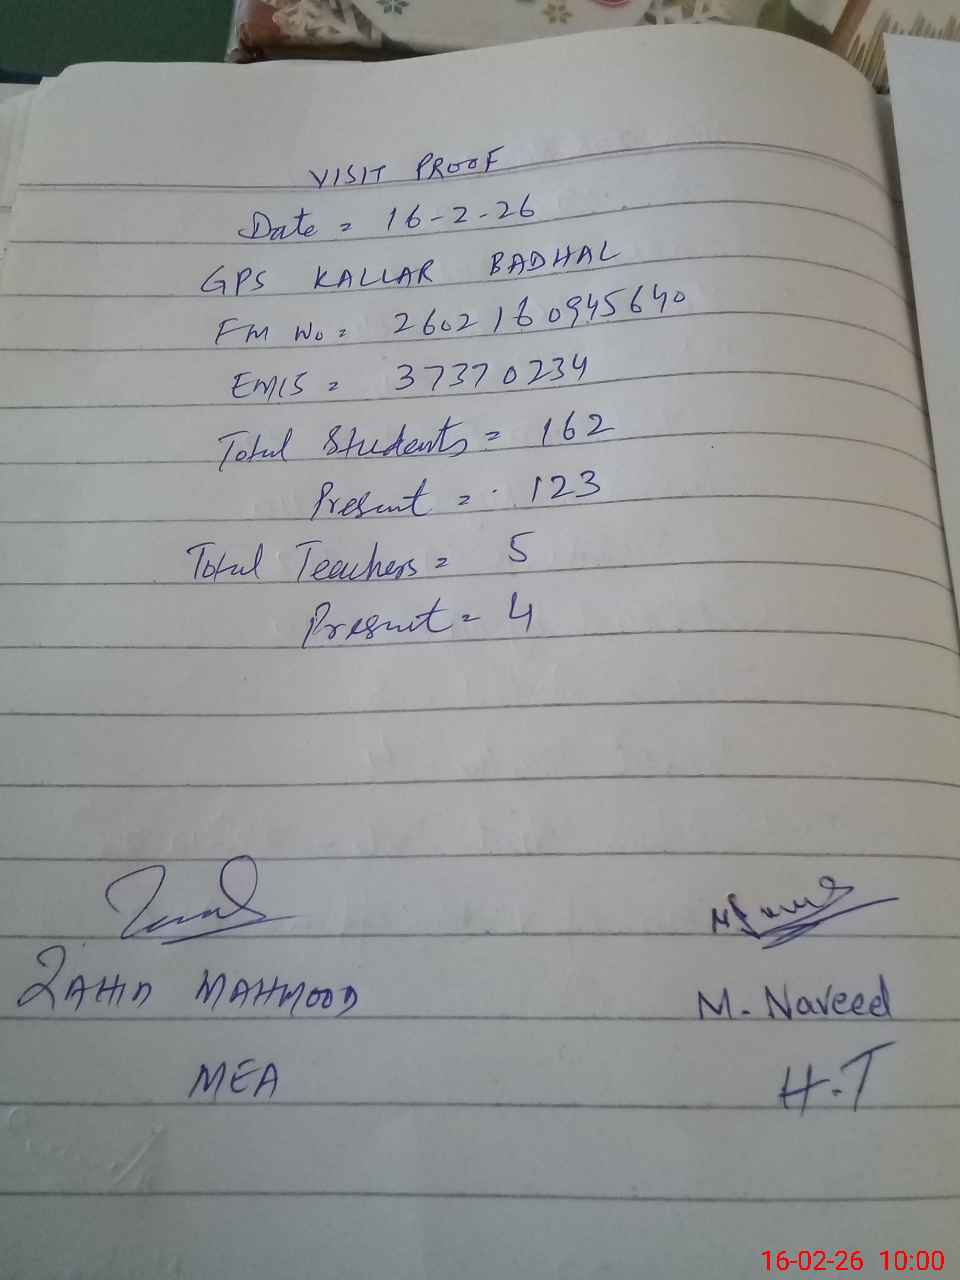 VISIT PROOF
Date = 16-2-26
GPS KALLAR BADHAL
FM No = 2602160945640
EMIS = 37370234
Total Students = 162
Present = 123
Total Teachers = 5
Present = 4
ZAHID MAHMOOD
M. Naveed
MEA
H.T
16-02-26 10:00